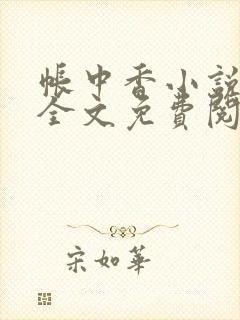 帳中香小說
全文免費閱
宋如華